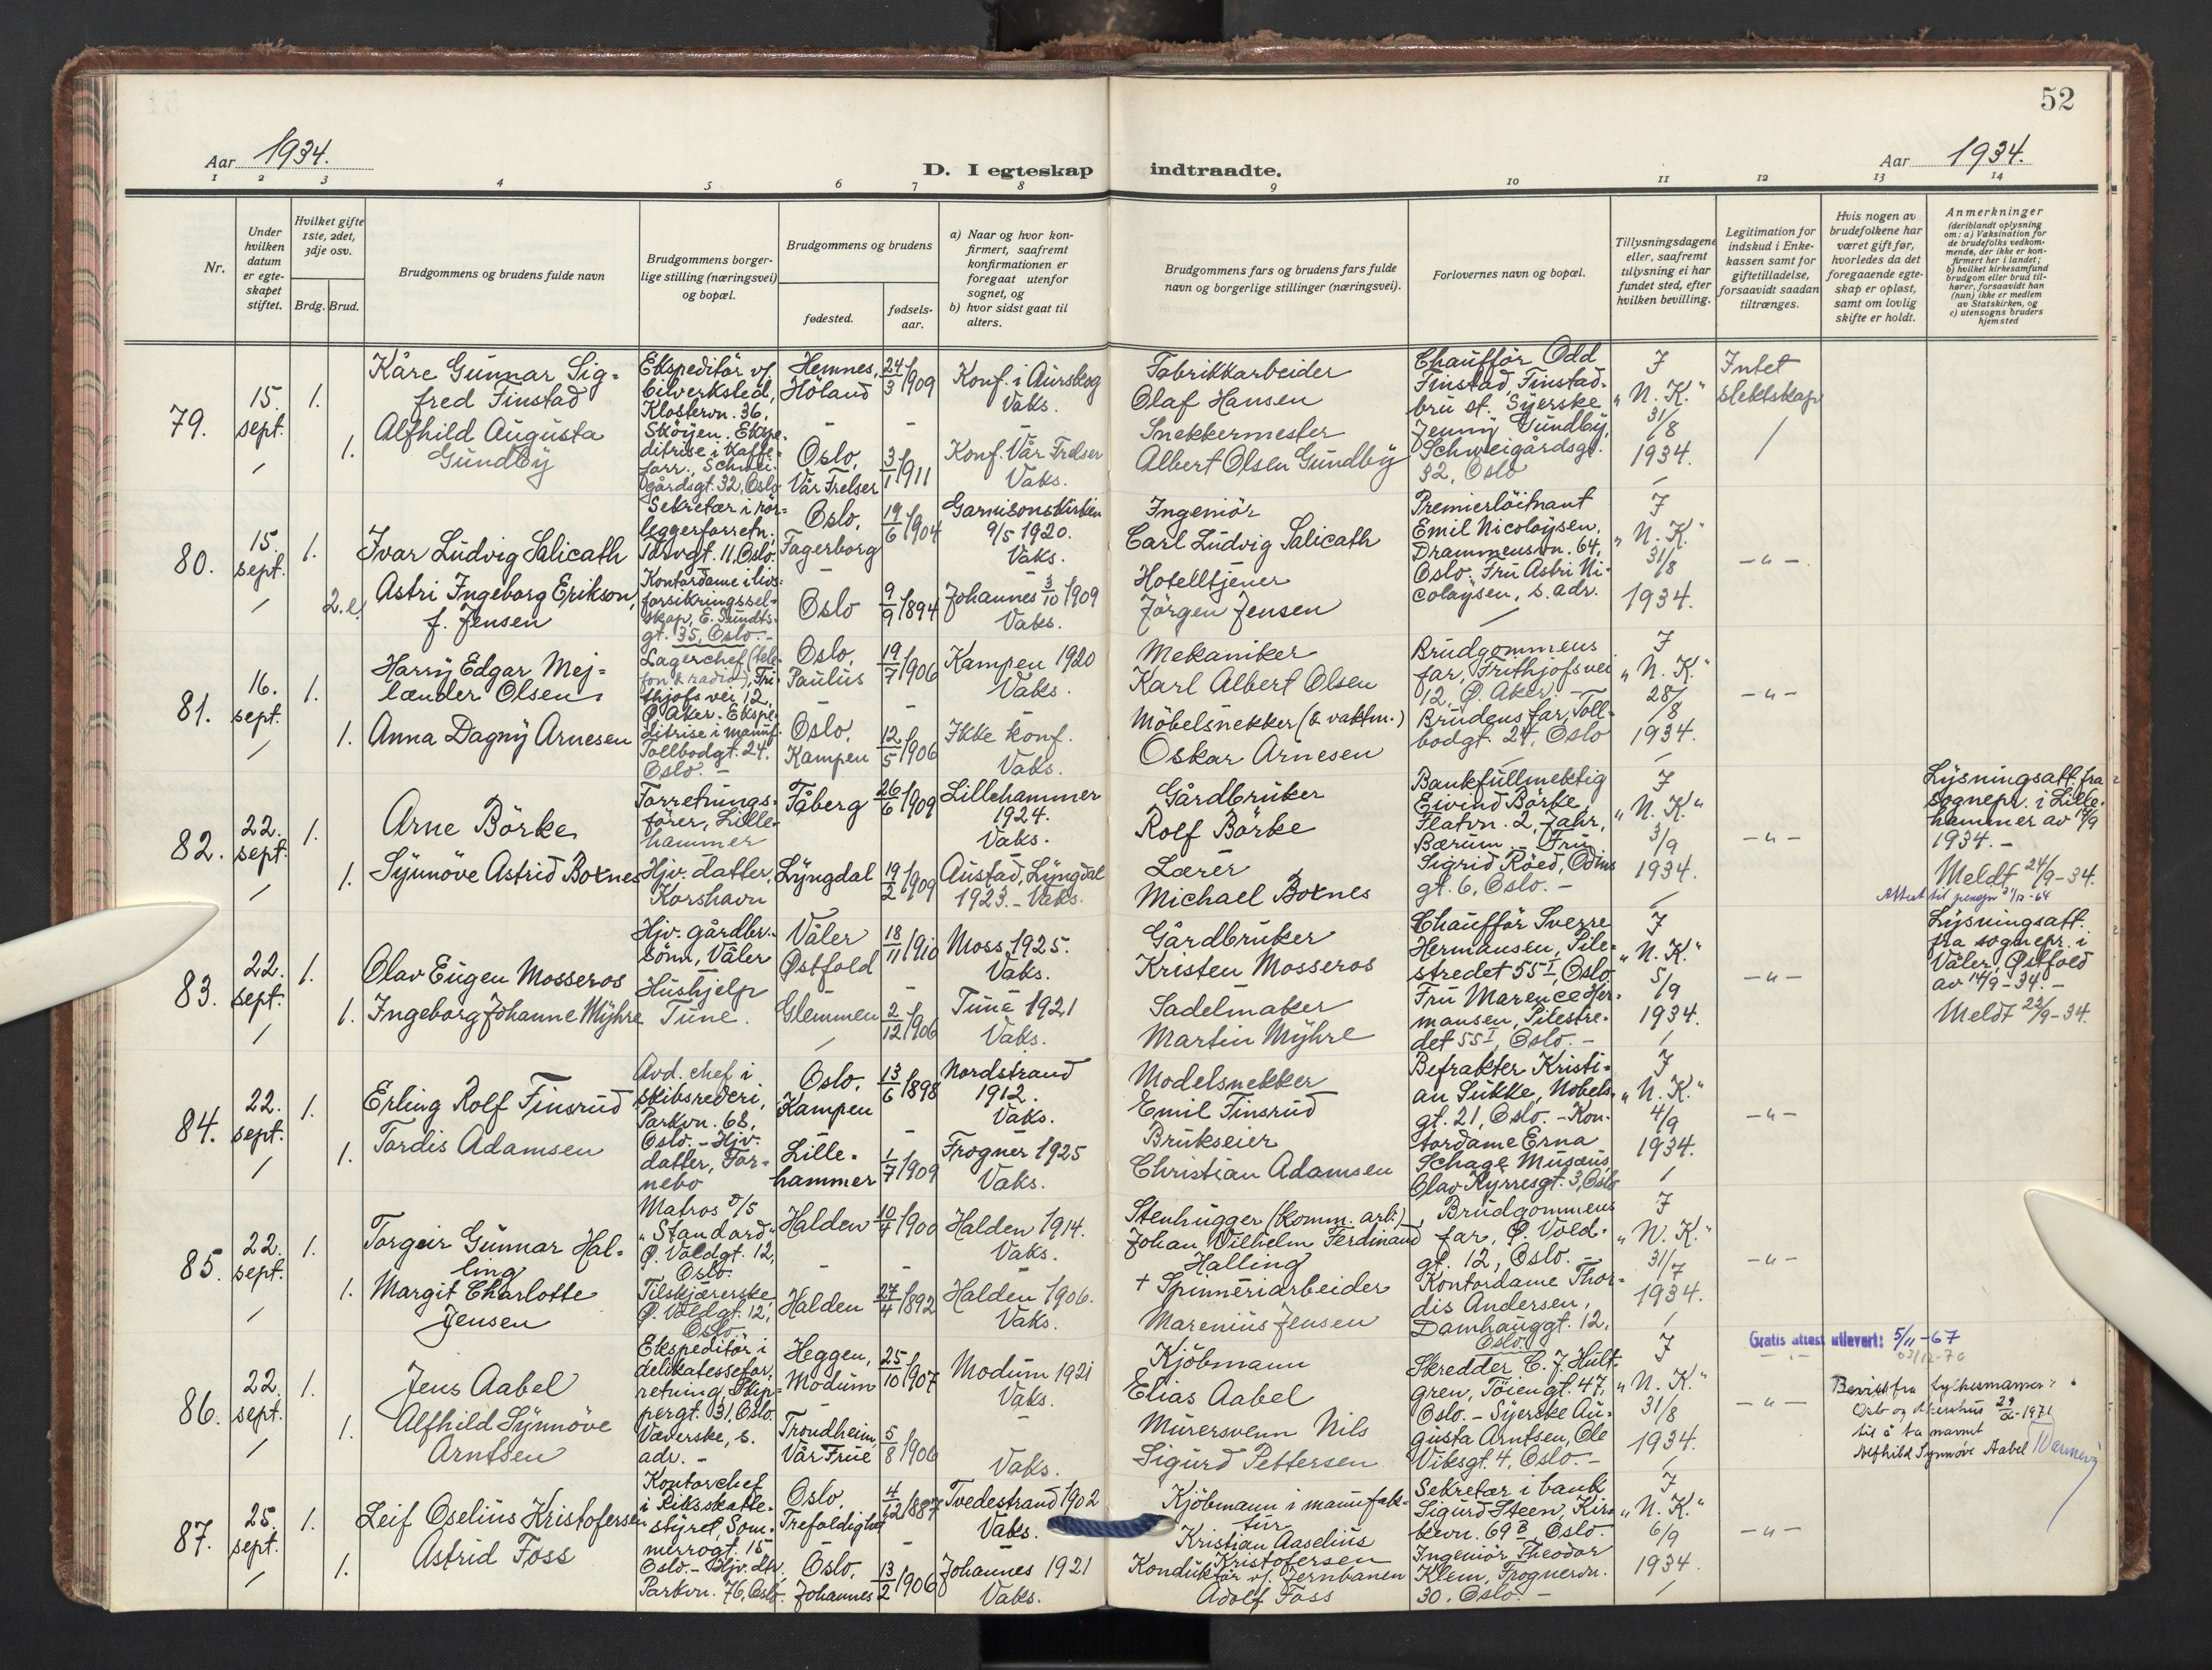 52
Aar 1934.
D. I egteskap indtraadte.
Aar 1934.
1 2 3 4 5 6 7 8 9 10 11 12 13 14
Nr.
Under hvilken datum er egteskapet stiftet.
Hvilket gifte 1ste, 2det, 3dje osv.
Brdg. Brud.
Brudgommens og brudens fulde navn
Brudgommens borgerlige stilling (næringsvei) og bopæl.
Brudgommens og brudens
fødested.
fødselsaar.
a) Naar og hvor konfirmert, saafremt konfirmationen er foregaat utenfor sognet, og
b) hvor sidst gaat til alters.
Brudgommens fars og brudens fars fulde navn og borgerlige stillinger (næringsvei).
Forlovernes navn og bopæl.
Tillysningsdagene eller, saafremt tillysning ei har fundet sted, efter hvilken bevilling.
Legitimation for indskud i Enkekassen samt for giftetilladelse, forsaavidt saadan tiltrænges.
Hvis nogen av brudefolkene har været gift før, hvorledes da det foregaaende egteskap er opløst, samt om lovlig skifte er holdt.
Anmerkninger (deriblandt oplysning om: a) Vaksination for de brudefolks vedkommende, der ikke er konfirmert her i landet; b) hvilket kirkesamfund brudgom eller brud tilhører, forsaavidt han (hun) ikke er medlem av Statskirken, og c) utensogns bruders hjemsted
79.
15. sept.
1.
Kåre Gunnar Sigfred Finstad
Ekspeditör v/ bilverksted, Klostervn. 36, Sköyen.
Hemnes, Höland
24/3 1909
Konf. i Aurskog
Vaks.
Fabrikkarbeider
Olaf Hansen
1.
Alfhild Augusta Gundby
Ekspeditrise i kaffeforr., Schweigårdsgt. 32, Oslo
Oslo, Vår Frelser
3/1 1911
Konf. Vår Frelser
Vaks.
Snekkermester
Albert Olsen Gundby
Chaufför Odd Finstad, Finstadbru st. Syerske Jenny Gundby, Schweigårdsgt. 32, Oslo
I "N. K." 31/8 1934.
Intet slektskap
80.
15. sept.
1.
Ivar Ludvig Salicath
Sekretær i rörleggerforretn., Torvgt. 11, Oslo.
Oslo, Fagerborg
19/6 1904
Garnisonskirken 9/5 1920.
Vaks.
Ingeniör
Carl Ludvig Salicath
2. e.
Astri Ingeborg Erikson, f. Jensen
Kontordame i livsforsikringsselskap, E. Sundtsgt. 35, Oslo.-
Oslo
9/9 1894
Johannes 3/10 1909
Vaks.
Hotelltjener
Jörgen Jensen
Premierlöitnant Emil Nicolaysen, Drammensvn. 64, Oslo. Fru Astri Nicolaysen, s. adr.
I "N. K." 31/8 1934.
- " -
81.
16. sept.
1.
Harry Edgar Mejlænder Olsen
Lagerchef (telefon & radio), Frithjofs vei 12, Ø. Aker.
Oslo, Paulus
19/7 1906
Kampen 1920
Vaks.
Mekaniker
Karl Albert Olsen
1.
Anna Dagny Arnesen
Ekspeditrise i manuf. Tollbodgt. 24, Oslo.-
Oslo, Kampen
12/5 1906
Ikke konf.
Vaks.
Möbelsnekker (& vaktm.)
Oskar Arnesen
Brudgommens far, Frithjofsvei 12, Ø. Aker. - Brudens far, Tollbodgt. 24, Oslo
I "N. K." 28/8 1934.
- " -
82.
22. sept.
1.
Arne Börke
Forretningsförer, Lillehammer
Fåberg
26/6 1909
Lillehammer 1924.
Vaks.
Gårdbruker
Rolf Börke
1.
Synnöve Astrid Botnes
Hjv. datter, Korshavn
Lyngdal
19/2 1909
Austad, Lyngdal 1923.- Vaks.
Lærer
Michael Botnes
Bankfullmektig Eivind Börke, Flatvn. 2, Jahr, Bærum.- Fru Sigrid Röed, Odinsgt. 6, Oslo.-
I "N. K." 3/9 1934.
- " -
Lysningsatt. fra sognepr. i Lillehammer av 17/9 1934.-
Meldt 24/9-34.
83.
22. sept.
1.
Olav Eugen Mosseros
Hjv. gårdbr. sönn, Våler
Våler Østfold
18/11 1910
Moss 1925.
Vaks.
Gårdbruker
Kristen Mosseros
1.
Ingeborg Johanne Myhre
Hushjelp Tune.
Glemmen
2/12 1906
Tune 1921
Vaks.
Sadelmaker
Martin Myhre
Chaufför Sverre Hermansen, Pilestredet 55 I, Oslo
Fru Marence Hermansen, Pilestredet 55 I, Oslo.-
I "N. K." 5/9 1934.
- " -
Lysningsatt. fra sognepr. i Våler, Østfold av 14/9-34.-
Meldt 22/9-34.
84.
22. sept.
1.
Erling Rolf Finsrud
Avd. chef i skibsrederi, Parkvn. 68, Oslo.-
Oslo, Kampen
13/6 1898
Nordstrand 1912.
Vaks.
Modelsnekker
Emil Finsrud
1.
Tordis Adamsen
Hjv. datter, Fornebo
Lillehammer
1/7 1909
Frogner 1925
Vaks.
Brukseier
Christian Adamsen
Befrakter Kristian Sukke, Nobelsgt. 21, Oslo.- Kontordame Erna Schage Musæus, Olav Kyrresgt. 3, Oslo
I "N. K." 4/9 1934.
- " -
85.
22. sept.
1.
Torgeir Gunnar Halling
Matros D/S "Standard" Ø. Voldgt. 12, Oslo.
Halden
10/4 1900
Halden 1914.
Vaks.
Stenhugger (komm. arb.)
Johan Wilhelm Ferdinand Halling
1.
Margit Charlotte Jensen
Tilskjærerske Ø. Voldgt. 12, Oslo.
Halden
27/4 1892
Halden 1906.
Vaks.
+ Spinneriarbeider
Marenius Jensen
Brudgommens far, Ø. Voldgt. 12, Oslo.- Kontordame Thordis Andersen, Damhauggt. 12, Oslo.
I "N. K." 31/7 1934.
- " -
Gratis attest utlevert: 5/11-67
86.
22. sept.
1.
Jens Aabel
Ekspeditör i delikatesseforretning, Skippergt. 31, Oslo.
Heggen, Modum
25/10 1907
Modum 1921
Vaks.
Kjöbmann
Elias Aabel
1.
Alfhild Synnöve Arntsen
Væverske, s. adr.-
Trondheim, Vår Frue
5/8 1906
Vaks.
Murersvenn Nils Sigurd Pettersen
Skredder C. J. Hultgren, Töiengt. 47, Oslo.- Syerske Augusta Arntsen, Ole Viksgt. 4, Oslo.-
I "N. K." 31/8 1934.
- " -
Oslo og Akershus 1971 til å ta navnet Alfhild Synnöve Aabel
87.
25. sept.
1.
Leif Oselius Kristofersen
Kontorchef i Riksskattestyret, Sommerrogt. 15 Oslo.-
Oslo, Trefoldighet
4/12 1887
Tvedestrand 1902
Vaks.
Kjöbmann i manufaktur
Kristian Aaselius Kristofersen
1.
Astrid Foss
Hjv. dtr. Parkvn. 76, Oslo.-
Oslo, Johannes
13/2 1906
Johannes 1921
Vaks.
Konduktör v/ Jernbanen
Adolf Foss
Sekretær i bank Sigurd Steen, Kirkevn. 69 B, Oslo.
Ingeniör Theodor Klem, Frognervn. 30, Oslo.-
I "N. K." 6/9 1934.
- " -